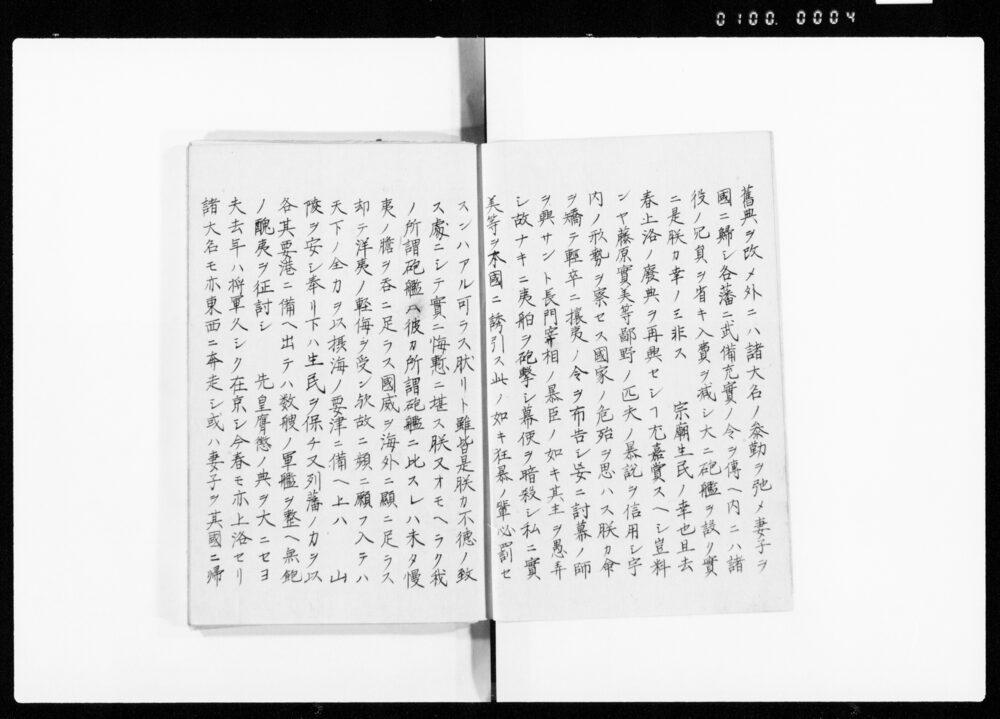 0100.0004
舊典ヲ改メ外ニハ諸大名ノ參勤ヲ弛メ妻子ヲ
國ニ歸シ各藩ニ武備充實ノ令ヲ傳ヘ内ニハ諸
役ノ冗員ヲ省キ入費ヲ減シ大ニ砲艦ヲ設ク實
ニ是朕カ幸ノミ非ス 宗廟生民ノ幸也且去
春上洛ノ廢典ヲ再興セシヿ尤嘉賞スヘシ豈料
ンヤ藤原實美等鄙野ノ匹夫ノ暴説ヲ信用シ宇
内ノ形勢ヲ察セス國家ノ危殆ヲ思ハス朕カ命
ヲ矯テ輕卒ニ攘夷ノ令ヲ布告シ妄ニ討幕ノ師
ヲ興サント長門宰相ノ暴臣ノ如キ其主ヲ愚弄
シ故ナキニ夷舶ヲ砲撃シ幕使ヲ暗殺シ私ニ實
美等ヲ本國ニ誘引ス此ノ如キ狂暴ノ輩必罰セ
スンハアル可ラス狀リト雖皆是朕カ不德ノ致
ス處ニシテ實ニ悔慙ニ堪ス朕又オモヘラク我
ノ所謂砲艦ハ彼カ所謂砲艦ニ比スレハ未タ慢
夷ノ膽ヲ吞ニ足ラス國威ヲ海外ニ顯ニ足ラス
却テ洋夷ノ輕侮ヲ受ン欤故ニ頻ニ願フ入テハ
天下ノ全力ヲ以摂海ノ要津ニ備ヘ上ハ 山
陵ヲ安シ奉リ下ハ生民ヲ保チ又列藩ノカヲ以
各其要港ニ備ヘ出テハ数艘ノ軍艦ヲ整ヘ無飽
ノ醜夷ヲ征討シ 先皇膺懲ノ典ヲ大ニセヨ
夫去年ハ将軍久シク在京シ今春モ亦上洛セリ
諸大名モ亦東西ニ奔走シ或ハ妻子ヲ其國ニ帰